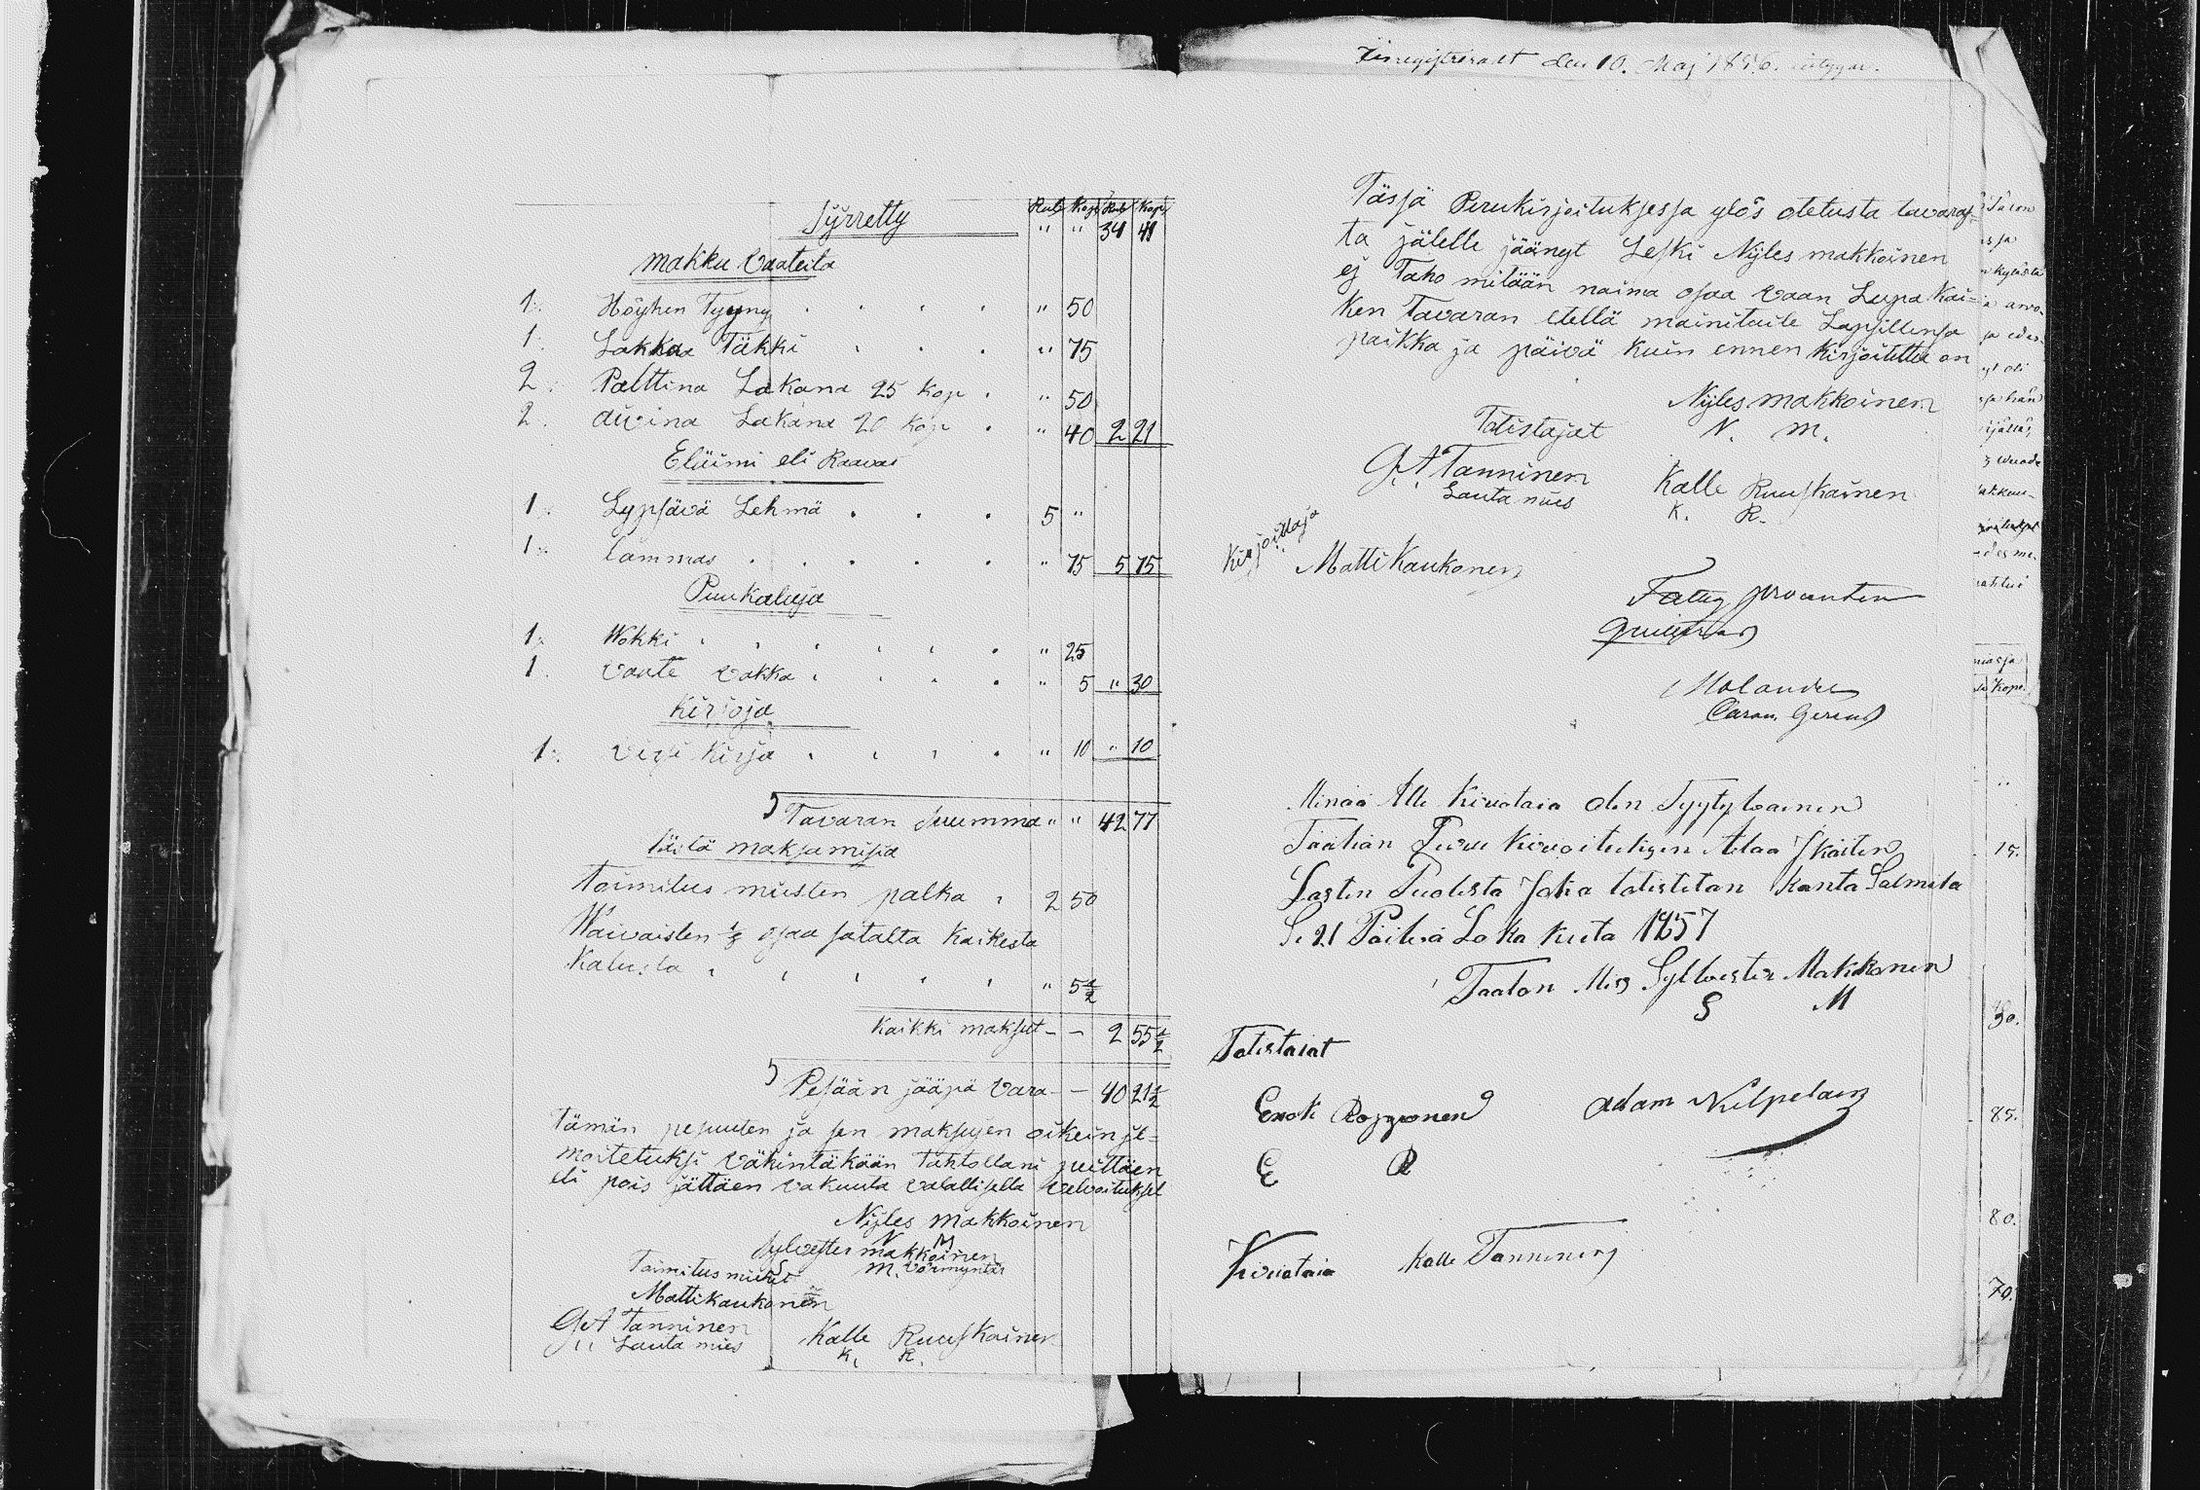 Rub Kop Rub Kop
Syrretty " " 34 41
makku Vaateita
1: Höyhen Tyyny " 50
1: Lakka Täkki " 75
2: Palttina Lakana 25 kop " 50
2. aivina Lakana 20 kop " 40 2 21
Eläimi eli Raavas
1: Lypsävä Lehmä 5 "
1: lammas " 75 5 75
Puukaluja
1: Wokki " 25
1 Vaate Vakka " 5 " 30
Kirjoja
1: Virsi Kirja " 10 " 10
Tavaran Suumma " " 42 77
Tästä maksamisia
Toimitus miesten palka 2 50
Waivaisten 1/8 osaa satalta Kaikesta
Kalusta " 5 1/2
Kaikki maksut - - 2 55 1/2
Pesään jääpä Vara - - 40 21 1/2
Tämän pesuuden ja sen maksujen oikein jl=
moitetuksi Vähintäkään Tahtollani puittäen
eli pois jättäen Vakuuta Valallisella Velvoituksel
Nyles Makkoinen
N M
Sylvester makkoinen
S M. Vörmyntär
Toimitus miehet
Matti Kaukonen
G A Tanninen
Lauta mies
Kalle Ruuskainen
K. R.
den 10. Maj
Tässä Perukirjoituksessa ylös otetusta tavaras=
ta jälelle jäänyt Leski Nyles makkoinen
ej Taho mitään naima osaa Vaan Lupa Kai=
ken Tavaran etellä mainituile Lapsillensa
paikka ja päivä kuin ennen Kirjoitettu on
Nyles makkoinen
N. M.
Totistajat
G. A. Tanninen
Lauta mies
Kalle Ruuskainen
K. R.
Kirjoittaja
Matti Kaukonen
Fattig procenten
quitteras
Molander
Caron. Gevens
Minää Alle Kirioitaia olen Tyytyveinen
Täähän Peru Kirioituksen
Lasten Puolesta Joka totistetan Kanta Salmela
Se 21 Päivä Loka Kuta 1857
Taalon Mies Sylvester Makkonen
S M
Totistaiat
Enok Ropponen
E R
Adam Kilpelain
Kiriotaia Kalle Tanninen
Kope.
15.
30.
85.
80.
70.